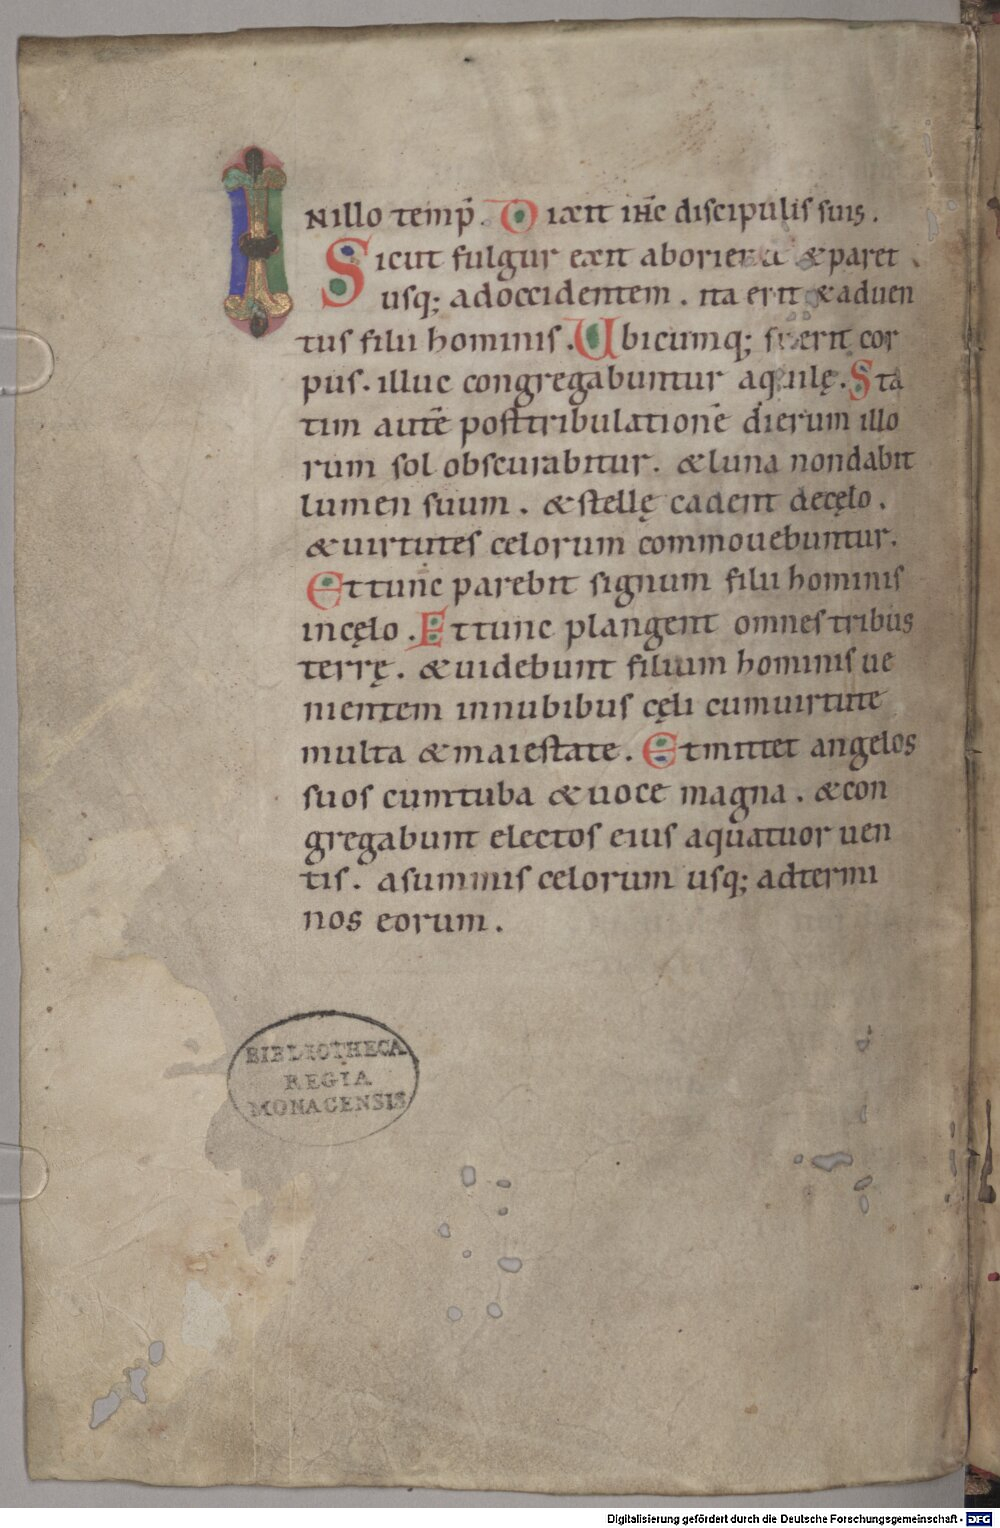 INillo temp̄. Dixit ih̄c discipulis suis.
Sicut fulgur exit aboriente & paret
usq; adoccidentem. ita erit & aduen
tus filii hominis. Ubicumq; fuerit cor
pus. illuc congregabuntur aquilę. Sta
tim autē posttribulationē dierum illo
rum sol obscurabitur. & luna nondabit
lumen suum. & stellę cadent decęlo.
& uirtutes celorum commouebuntur.
Et tunc parebit signum filii hominis
incęlo. Et tunc plangent omnes tribus
terrę. & uidebunt filium hominis ue
nientem innubibus cęli cumuirtute
multa & maiestate. Et mittet angelos
suos cumtuba & uoce magna. & con
gregabunt electos eius aquatuor uen
tis. asummis celorum usq; adtermi
nos eorum.
BIBLIOTHECA
REGIA
MONACENSIS
Digitalisierung gefördert durch die Deutsche Forschungsgemeinschaft - DFG